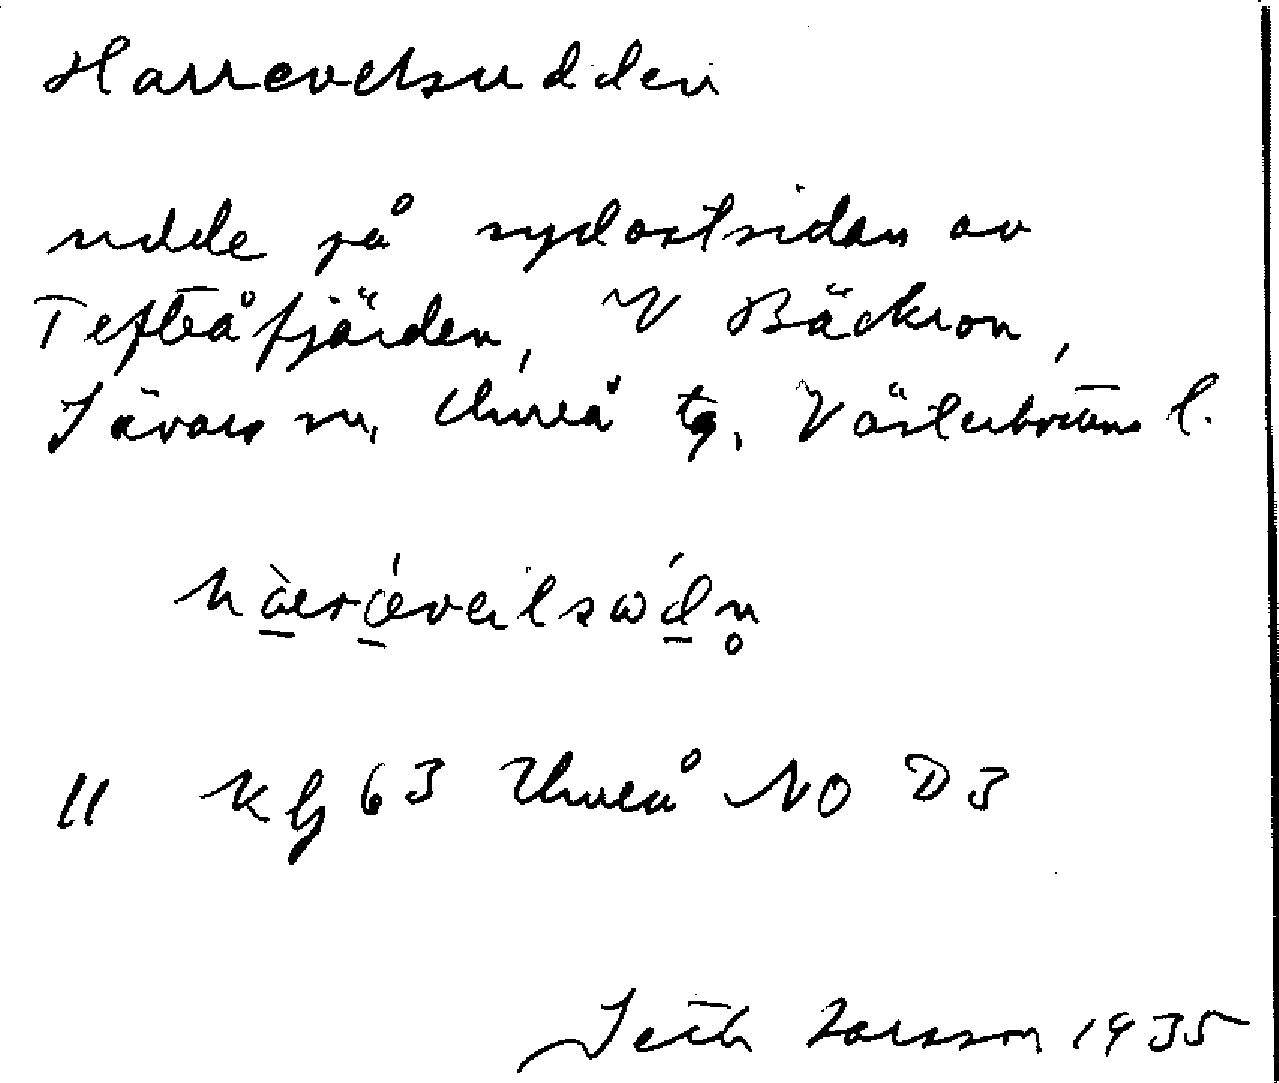 Harrevelsudden
udde på sydostsidan av
Tefteåfjärden, V Bäckson,
Sävars sn, Umeå tg, Västerbottens l.
11 Kbl 63 Umeå NO D3
Larsson 1935